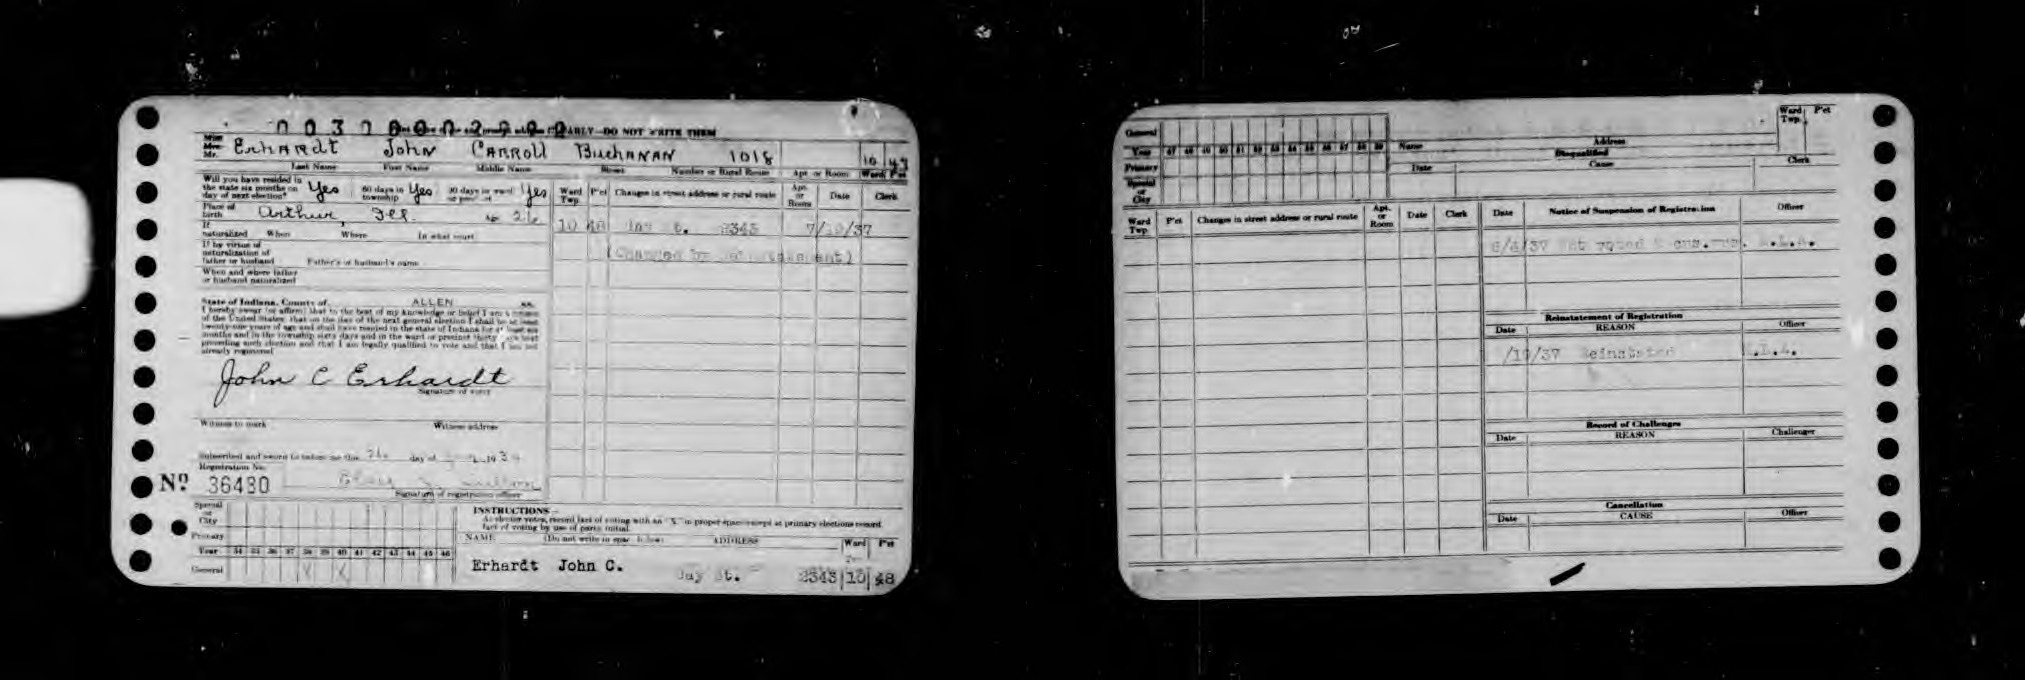 EARLY—DO NOT WRITE THEM
Miss
Mrs.
Mr. Erhardt John Carroll Buchanan 1018 10 49
Last Name First Name Middle Name Street Number or Rural Route Apt. or Room Ward Pct
Will you have resided in the state six months on day of next election? Yes 60 days in township Yes 30 days in ward or pct of Yes
Ward Twp. P'ct Changes in street address or rural route Apt. or Room Date Clerk
Place of birth Arthur, Ill.
10 48 St. 2343 7/10/37
If naturalized When Where In what court
If by virtue of naturalization of father or husband Father's or husband's name
When and where father or husband naturalized
State of Indiana, County of ALLEN ss.
I hereby swear (or affirm) that to the best of my knowledge or belief I am a citizen
of the United States; that on the day of the next general election I shall be at least
twenty-one years of age and shall have resided in the state of Indiana for at least six
months and in the township sixty days and in the ward or precinct thirty days next
preceding such election and that I am legally qualified to vote and that I am not
already registered
John C Erhardt
Signature of voter
Witness to mark Witness address
Subscribed and sworn to before me this 26 day of 19 34
Registration No.
No 36480
Signature of registration officer
Special or City
Primary
Year 34 35 36 37 38 39 40 41 42 43 44 45 46
General X X
INSTRUCTIONS—
As elector votes, record fact of voting with an "X" in proper space except at primary elections record
fact of voting by use of party initial.
NAME (Do not write in space below) ADDRESS Ward P'ct
Erhardt John C. St. 2343 10 48
General
Year 47 48 49 50 51 52 53 54 55 56 57 58 59
Primary
Special or City
Name Address Ward Twp. P'ct
Disqualified
Date Cause Clerk
Ward Twp. P'ct Changes in street address or rural route Apt. or Room Date Clerk
Date Notice of Suspension of Registration Officer
6/4/37 Not voted
Reinstatement of Registration
Date REASON Officer
/10/37 Reinstated
Record of Challenges
Date REASON Challenger
Cancellation
Date CAUSE Officer